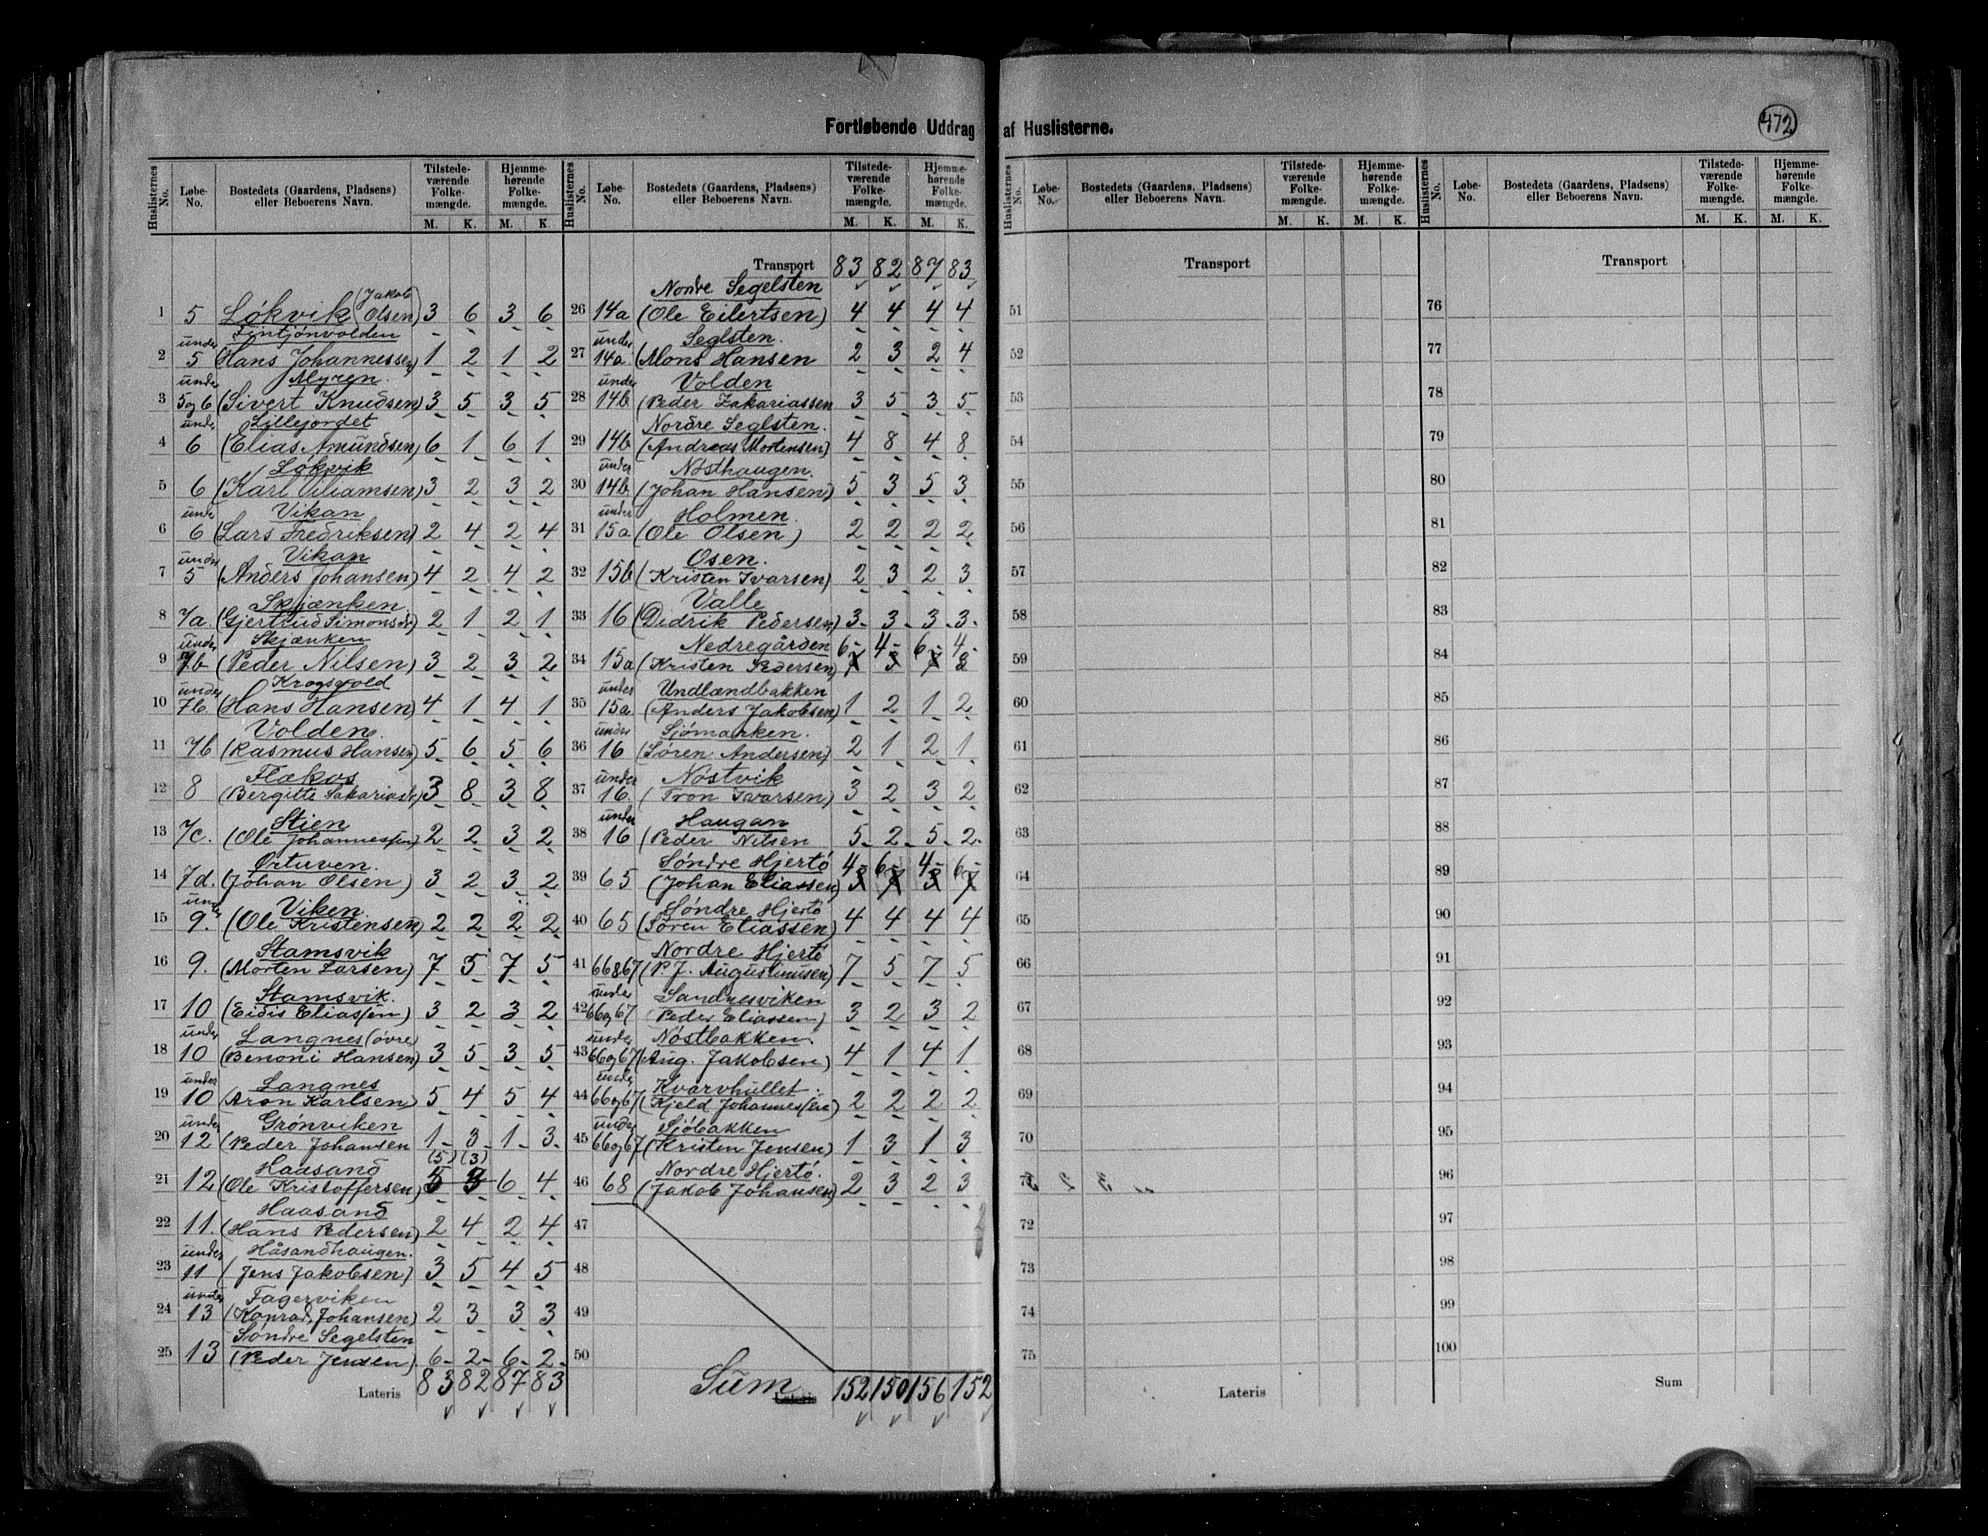 Fortløbende Uddrag af Huslisterne.
472
Huslisternes No. | Løbe-No. | Bostedets (Gaardens, Pladsens) eller Beboerens Navn. | Tilstedeværende Folkemængde. M. K. | Hjemmehørende Folkemængde. M. K.
1 5 Løkvik (Jakob Olsen) 3 6 3 6
Fintjønvolden
2 under 5 (Hans Johannessen) 1 2 1 2
Myren.
3 under 5og6 (Sivert Knudsen) 3 5 3 5
Lillejordet
4 under 6 (Elias Amundsen) 6 1 6 1
Løkvik
5 6 (Karl Viliamsen) 3 2 3 2
Vikan
6 under 6 (Lars Fredriksen) 2 4 2 4
Vikan
7 under 5 (Anders Johansen) 4 2 4 2
Skjænken.
8 7a. (Gjertrud Simonsdr) 2 1 2 1
Skjænken
9 under 7b (Peder Nilsen) 3 2 3 2
Krogsvold
10 under 7b. (Hans Hansen) 4 1 4 1
Volden.
11 7b (Rasmus Hansen) 5 6 5 6
Flakos
12 8 (Bergitte Sakariasdr) 3 8 3 8
Stien
13 7c. (Ole Johannessen) 2 2 3 2
Ørtuven.
14 7d. (Johan Olsen) 3 2 3 2
Viken.
15 under 9. (Ole Kristensen) 2 2 2 2
Stamsvik
16 9. (Morten Larsen) 7 5 7 5
Stamsvik.
17 10 (Eidis Eliassen) 3 2 3 2
Langnes (øvre)
18 under 10 (Benoni Hansen) 3 5 3 5
Langnes
19 under 10 (Aron Karlsen) 5 4 5 4
Grønviken
20 under 12 (Peder Johansen 1 3 1 3
Haasand (5) (3)
21 12 (Ole Kristoffersen) 5 3 6 4
Haasand
22 11. (Hans Pedersen) 2 4 2 4
Håsandhaugen.
23 under 11 (Jens Jakobsen) 3 5 4 5
Fagerviken
24 under 13 (Konrad Johansen) 2 3 3 3
Søndre Segelsten
25 13 (Peder Jensen) 6 2 6 2
Lateris 83 82 87 83
Huslisternes No. | Løbe-No. | Bostedets (Gaardens, Pladsens) eller Beboerens Navn. | Tilstedeværende Folkemængde. M. K. | Hjemmehørende Folkemængde. M. K.
Transport 83 82 87 83
Nordre Segelsten
26 14a (Ole Eilertsen) 4 4 4 4
Seglsten.
27 under 14a. (Mons Hansen 2 3 2 4
Volden
28 under 14b. (Peder Zakariassen 3 5 3 5
Nordre Seglsten.
29 14b (Andreas Mortensen) 4 8 4 8
Nøsthaugen.
30 under 14b. (Johan Hansen) 5 3 5 3
Holmen.
31 under 15a. (Ole Olsen) 2 2 2 2
Osen.
32 15b (Kristen Ivarsen) 2 3 2 3
Valle
33 16 (Didrik Pedersen) 3 3 3 3
Nedregården 6 4 6 4
34 15a (Kristen Pedersen) 7 3 7 3
Undlændbakken
35 under 15a. (Anders Jakobsen) 1 2 1 2
Sjømarken.
36 under 16 (Søren Andersen) 2 1 2 1
Nøstvik
37 under 16. (Tron Ivarsen) 3 2 3 2
Haugan
38 under 16 (Peder Nilsen 5 2 5 2
Søndre Hjertø 4 6 4 6
39 65 (Johan Eliassen) 3 7 3 7
Søndre Hjertø
40 65 (Søren Eliassen) 4 4 4 4
Nordre Hjertø
41 66&67 (P. J. Augustinusen) 7 5 7 5
Sandnesviken
42 under 66og67 (Peder Eliassen) 3 2 3 2
Nøstbakken.
43 under 66og67 (Aug. Jakobsen) 4 1 4 1
Kvarvhullet.
44 under 66og67 (Kjeld Johannessen) 2 2 2 2
Sjøbakken
45 under 66og67 (Kristen Jensen) 1 3 1 3
Nordre Hjertø.
46 68 (Jakob Johansen) 2 3 2 3
47
48
49
50
Sum Lateris 152 150 156 152
Huslisternes No. | Løbe-No. | Bostedets (Gaardens, Pladsens) eller Beboerens Navn. | Tilstedeværende Folkemængde. M. K. | Hjemmehørende Folkemængde. M. K.
Transport
51
52
53
54
55
56
57
58
59
60
61
62
63
64
65
66
67
68
69
70
71
72
73
74
75
Lateris
Huslisternes No. | Løbe-No. | Bostedets (Gaardens, Pladsens) eller Beboerens Navn. | Tilstedeværende Folkemængde. M. K. | Hjemmehørende Folkemængde. M. K.
Transport
76
77
78
79
80
81
82
83
84
85
86
87
88
89
90
91
92
93
94
95
96
97
98
99
100
Sum